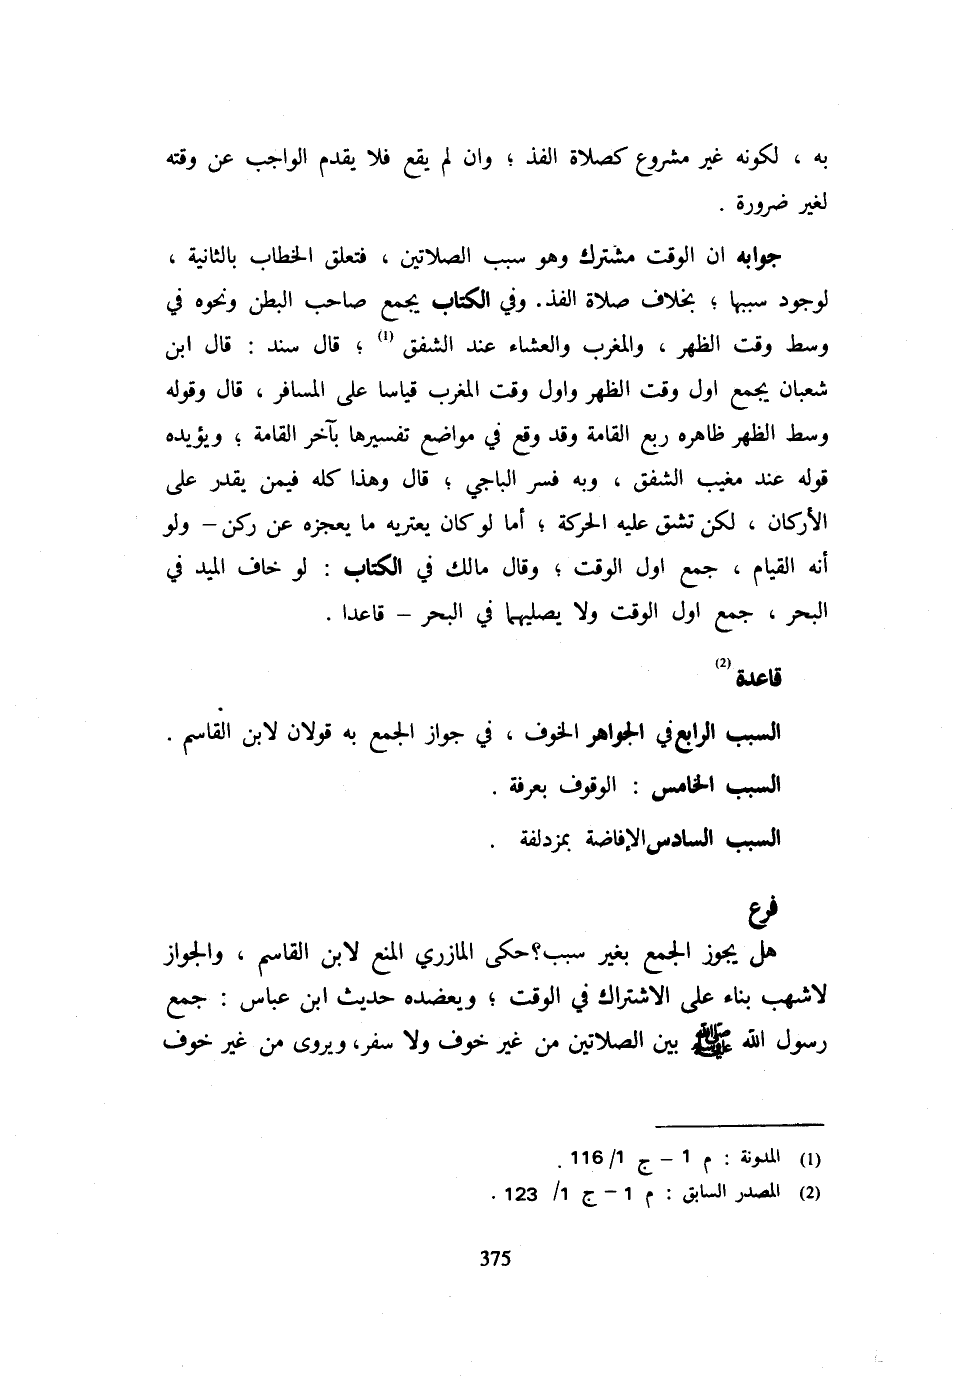 به ، لكونه غير مشروع كصلاة الفذ ؛ وان لم يقع فلا يقدم الواجب عن وقته
لغير ضرورة .
جوابه ان الوقت مشترك وهو سبب الصلاتين ، فتعلق الخطاب بالثانية ،
لوجود سببها ؛ بخلاف صلاة الفذ. وفي الكتاب يجمع صاحب البطن ونحوه في
وسط وقت الظهر ، والمغرب والعشاء عند الشفق (1) ؛ قال سند : قال ابن
شعبان يجمع اول وقت الظهر واول وقت المغرب قياسا على المسافر ، قال وقوله
وسط الظهر ظاهره ربع القامة وقد وقع في مواضع تفسيرها بآخر القامة ؛ ويؤيده
قوله عند مغيب الشفق ، وبه فسر الباجي ؛ قال وهذا كله فيمن يقدر على
الأركان ، لكن تشق عليه الحركة ؛ أما لو كان يعتريه ما يعجزه عن ركن – ولو
أنه القيام ، جمع اول الوقت ؛ وقال مالك في الكتاب : لو خاف الميد في
البحر ، جمع اول الوقت ولا يصليهما في البحر – قاعدا .
قاعدة (2)
السبب الرابع في الجواهر الخوف ، في جواز الجمع به قولان لابن القاسم .
السبب الخامس : الوقوف بعرفة .
السبب السادس الإفاضة بمزدلفة .
فرع
هل يجوز الجمع بغير سبب؟حكى المازري المنع لابن القاسم ، والجواز
لاشهب بناء على الاشتراك في الوقت ؛ ويعضده حديث ابن عباس : جمع
رسول الله ﷺ بين الصلاتين من غير خوف ولا سفر، ويروى من غير خوف
(1) المدونة : م 1 – ج 1/ 116 .
(2) المصدر السابق : م 1 – ج 1/ 123 .
375